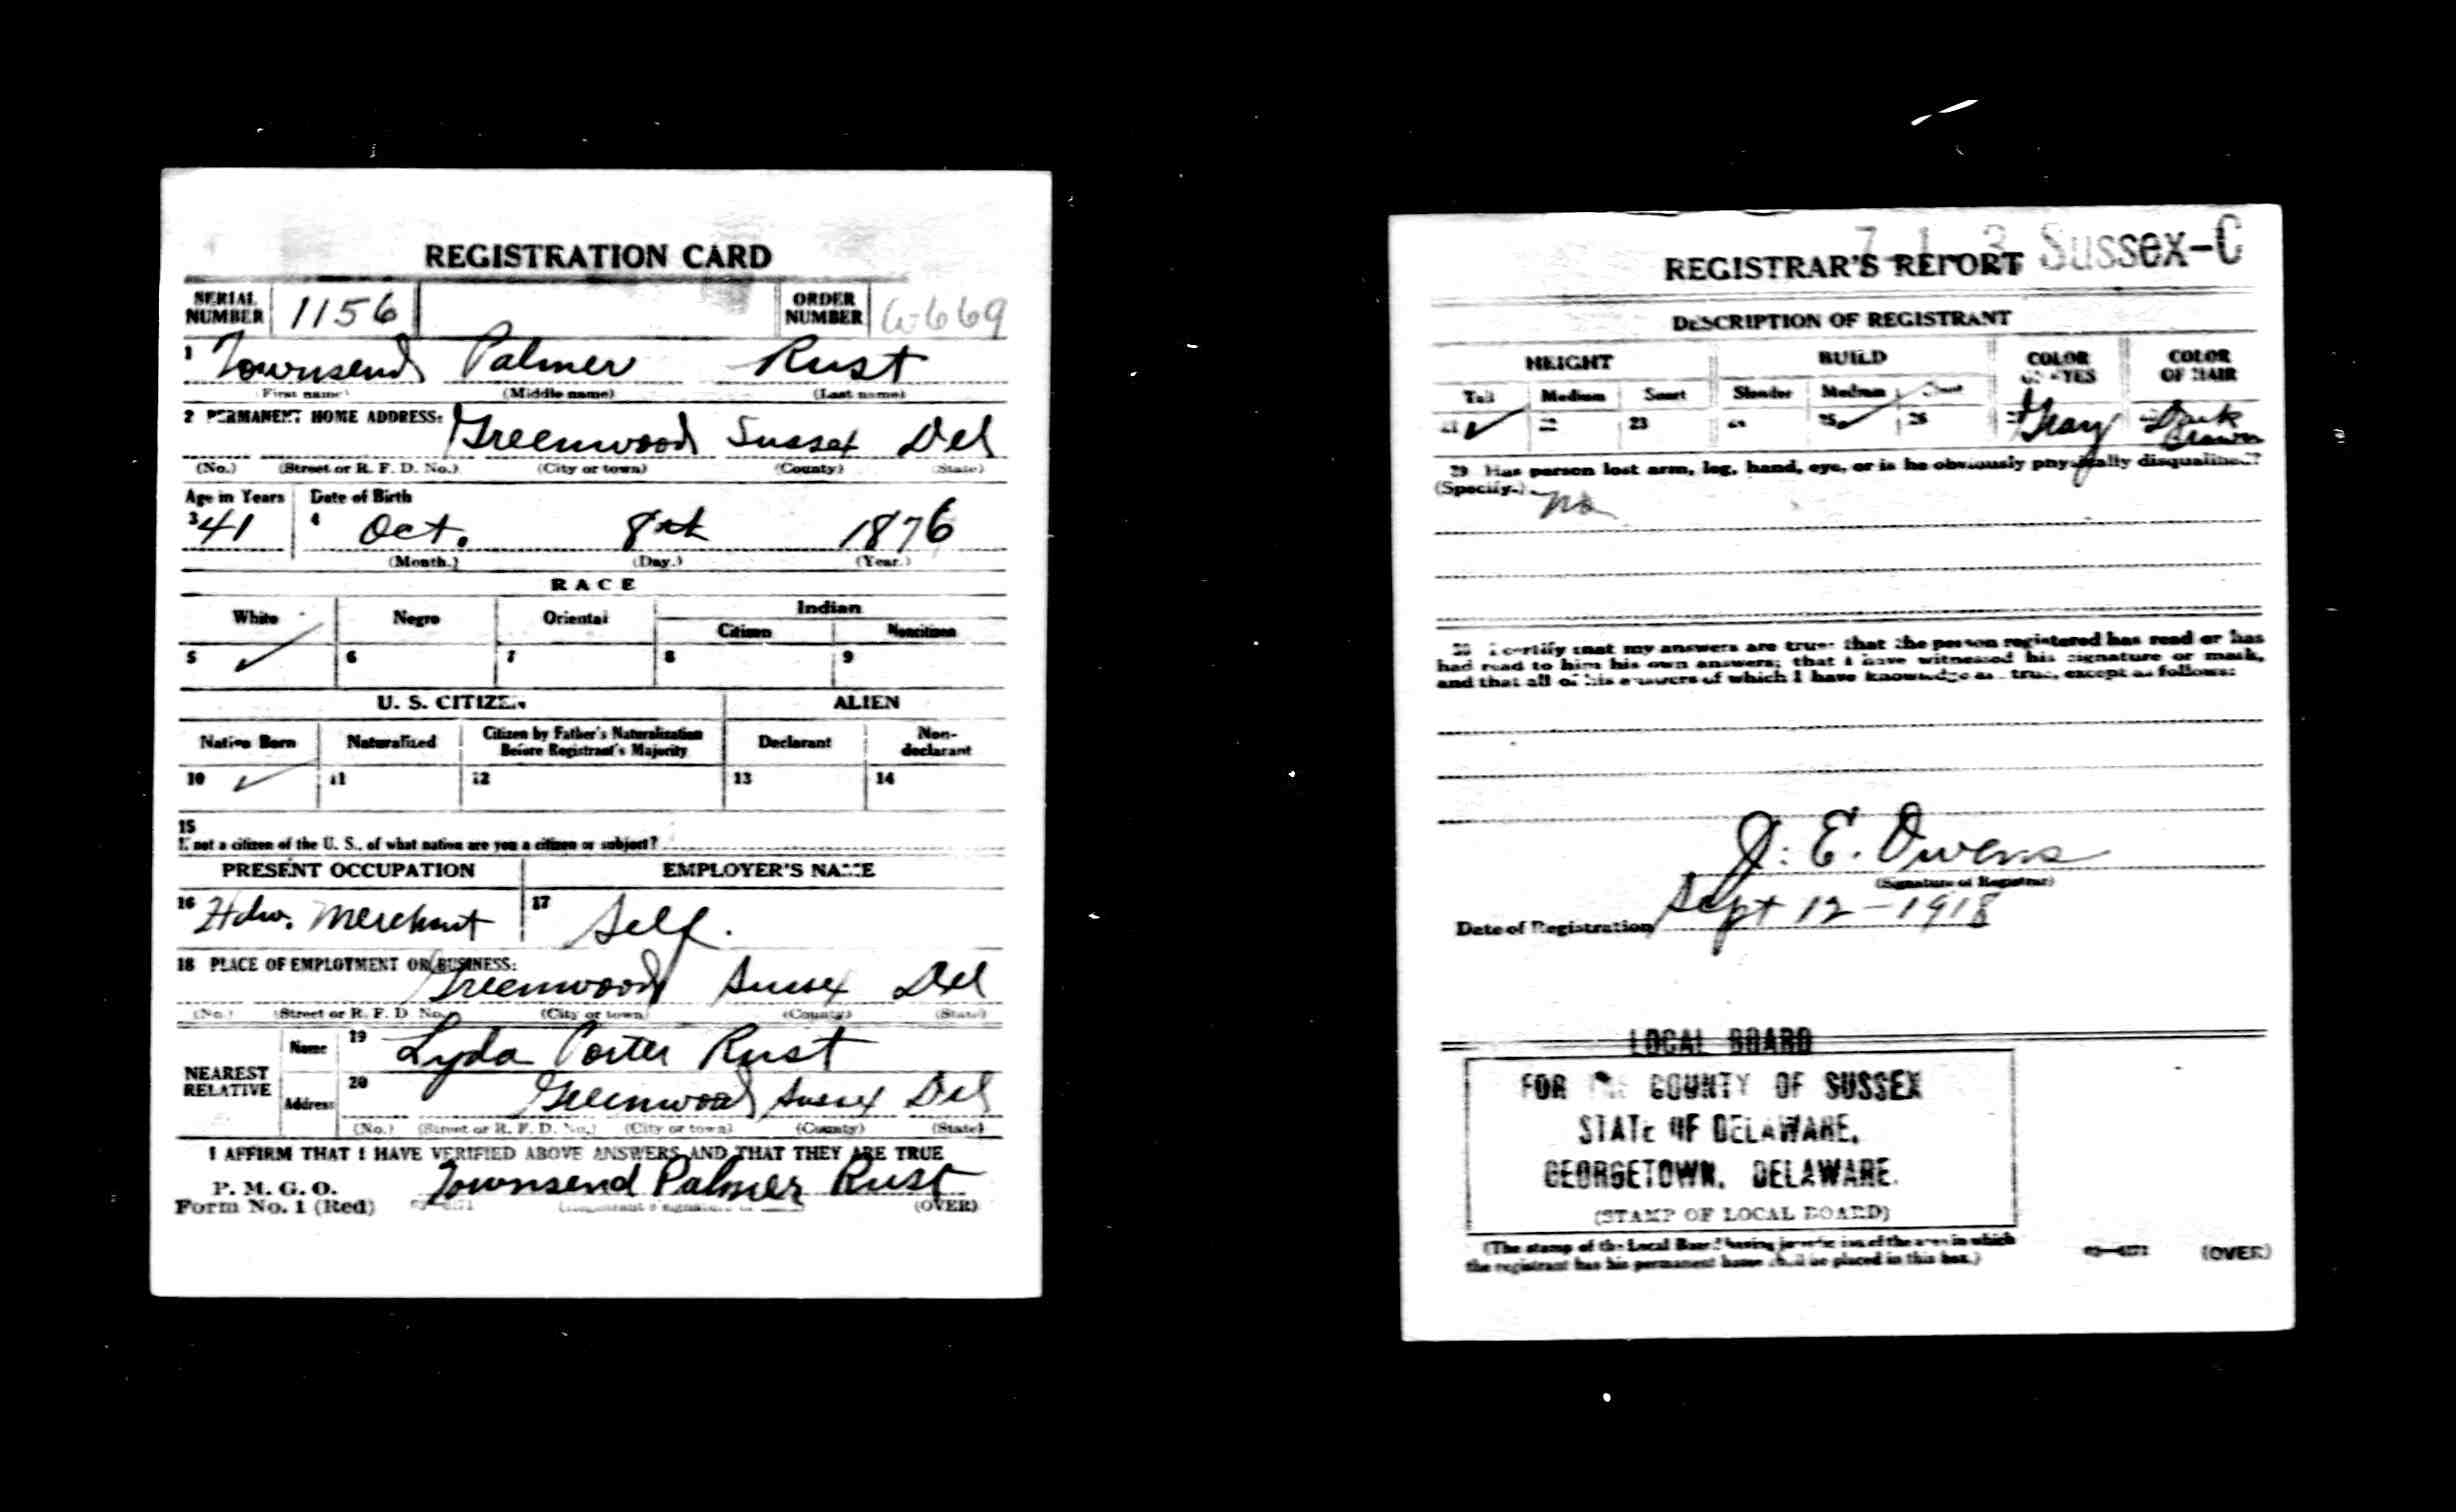 REGISTRATION CARD
SERIAL NUMBER 1156 ORDER NUMBER 669
1 Townsend Palmer Rust
(First name) (Middle name) (Last name)
2 PERMANENT HOME ADDRESS: Greenwood Sussex Del
(No.) (Street or R. F. D. No.) (City or town) (County) (State)
Age in Years Date of Birth
3 41 4 Oct. 8th 1876
(Month.) (Day.) (Year.)
RACE
White Negro Oriental Indian
Citizen Noncitizen
5 ✓ 6 7 8 9
U. S. CITIZEN ALIEN
Native Born Naturalized Citizen by Father's Naturalization Before Registrant's Majority Declarant Non-declarant
10 ✓ 11 12 13 14
15
If not a citizen of the U. S., of what nation are you a citizen or subject?
PRESENT OCCUPATION EMPLOYER'S NAME
16 Hdw. Merchant 17 Self.
18 PLACE OF EMPLOYMENT OR BUSINESS:
Greenwood Sussex Del
(No.) (Street or R. F. D. No.) (City or town) (County) (State)
NEAREST RELATIVE
Name 19 Lyda Carter Rust
Address 20 Greenwood Sussex Del
(No.) (Street or R. F. D. No.) (City or town) (County) (State)
I AFFIRM THAT I HAVE VERIFIED ABOVE ANSWERS AND THAT THEY ARE TRUE
P. M. G. O.
Form No. 1 (Red) Townsend Palmer Rust
(Registrant's signature or mark) (OVER)
7 1 3 Sussex-C
REGISTRAR'S REPORT
DESCRIPTION OF REGISTRANT
HEIGHT BUILD COLOR OF EYES COLOR OF HAIR
Tall Medium Short Slender Medium Stout
21 ✓ 22 23 24 25 ✓ 26 27 Gray 28 Dark Brown
29 Has person lost arm, leg, hand, eye, or is he obviously physically disqualified?
(Specify.) No
30 I certify that my answers are true; that the person registered has read or has
had read to him his own answers; that I have witnessed his signature or mark,
and that all of his answers of which I have knowledge are true, except as follows:
J. E. Owens
(Signature of Registrar)
Date of Registration Sept 12-1918
LOCAL BOARD
FOR THE COUNTY OF SUSSEX
STATE OF DELAWARE,
GEORGETOWN, DELAWARE.
(STAMP OF LOCAL BOARD)
(The stamp of the Local Board having jurisdiction of the area in which
the registrant has his permanent home shall be placed in this box.)
(OVER)